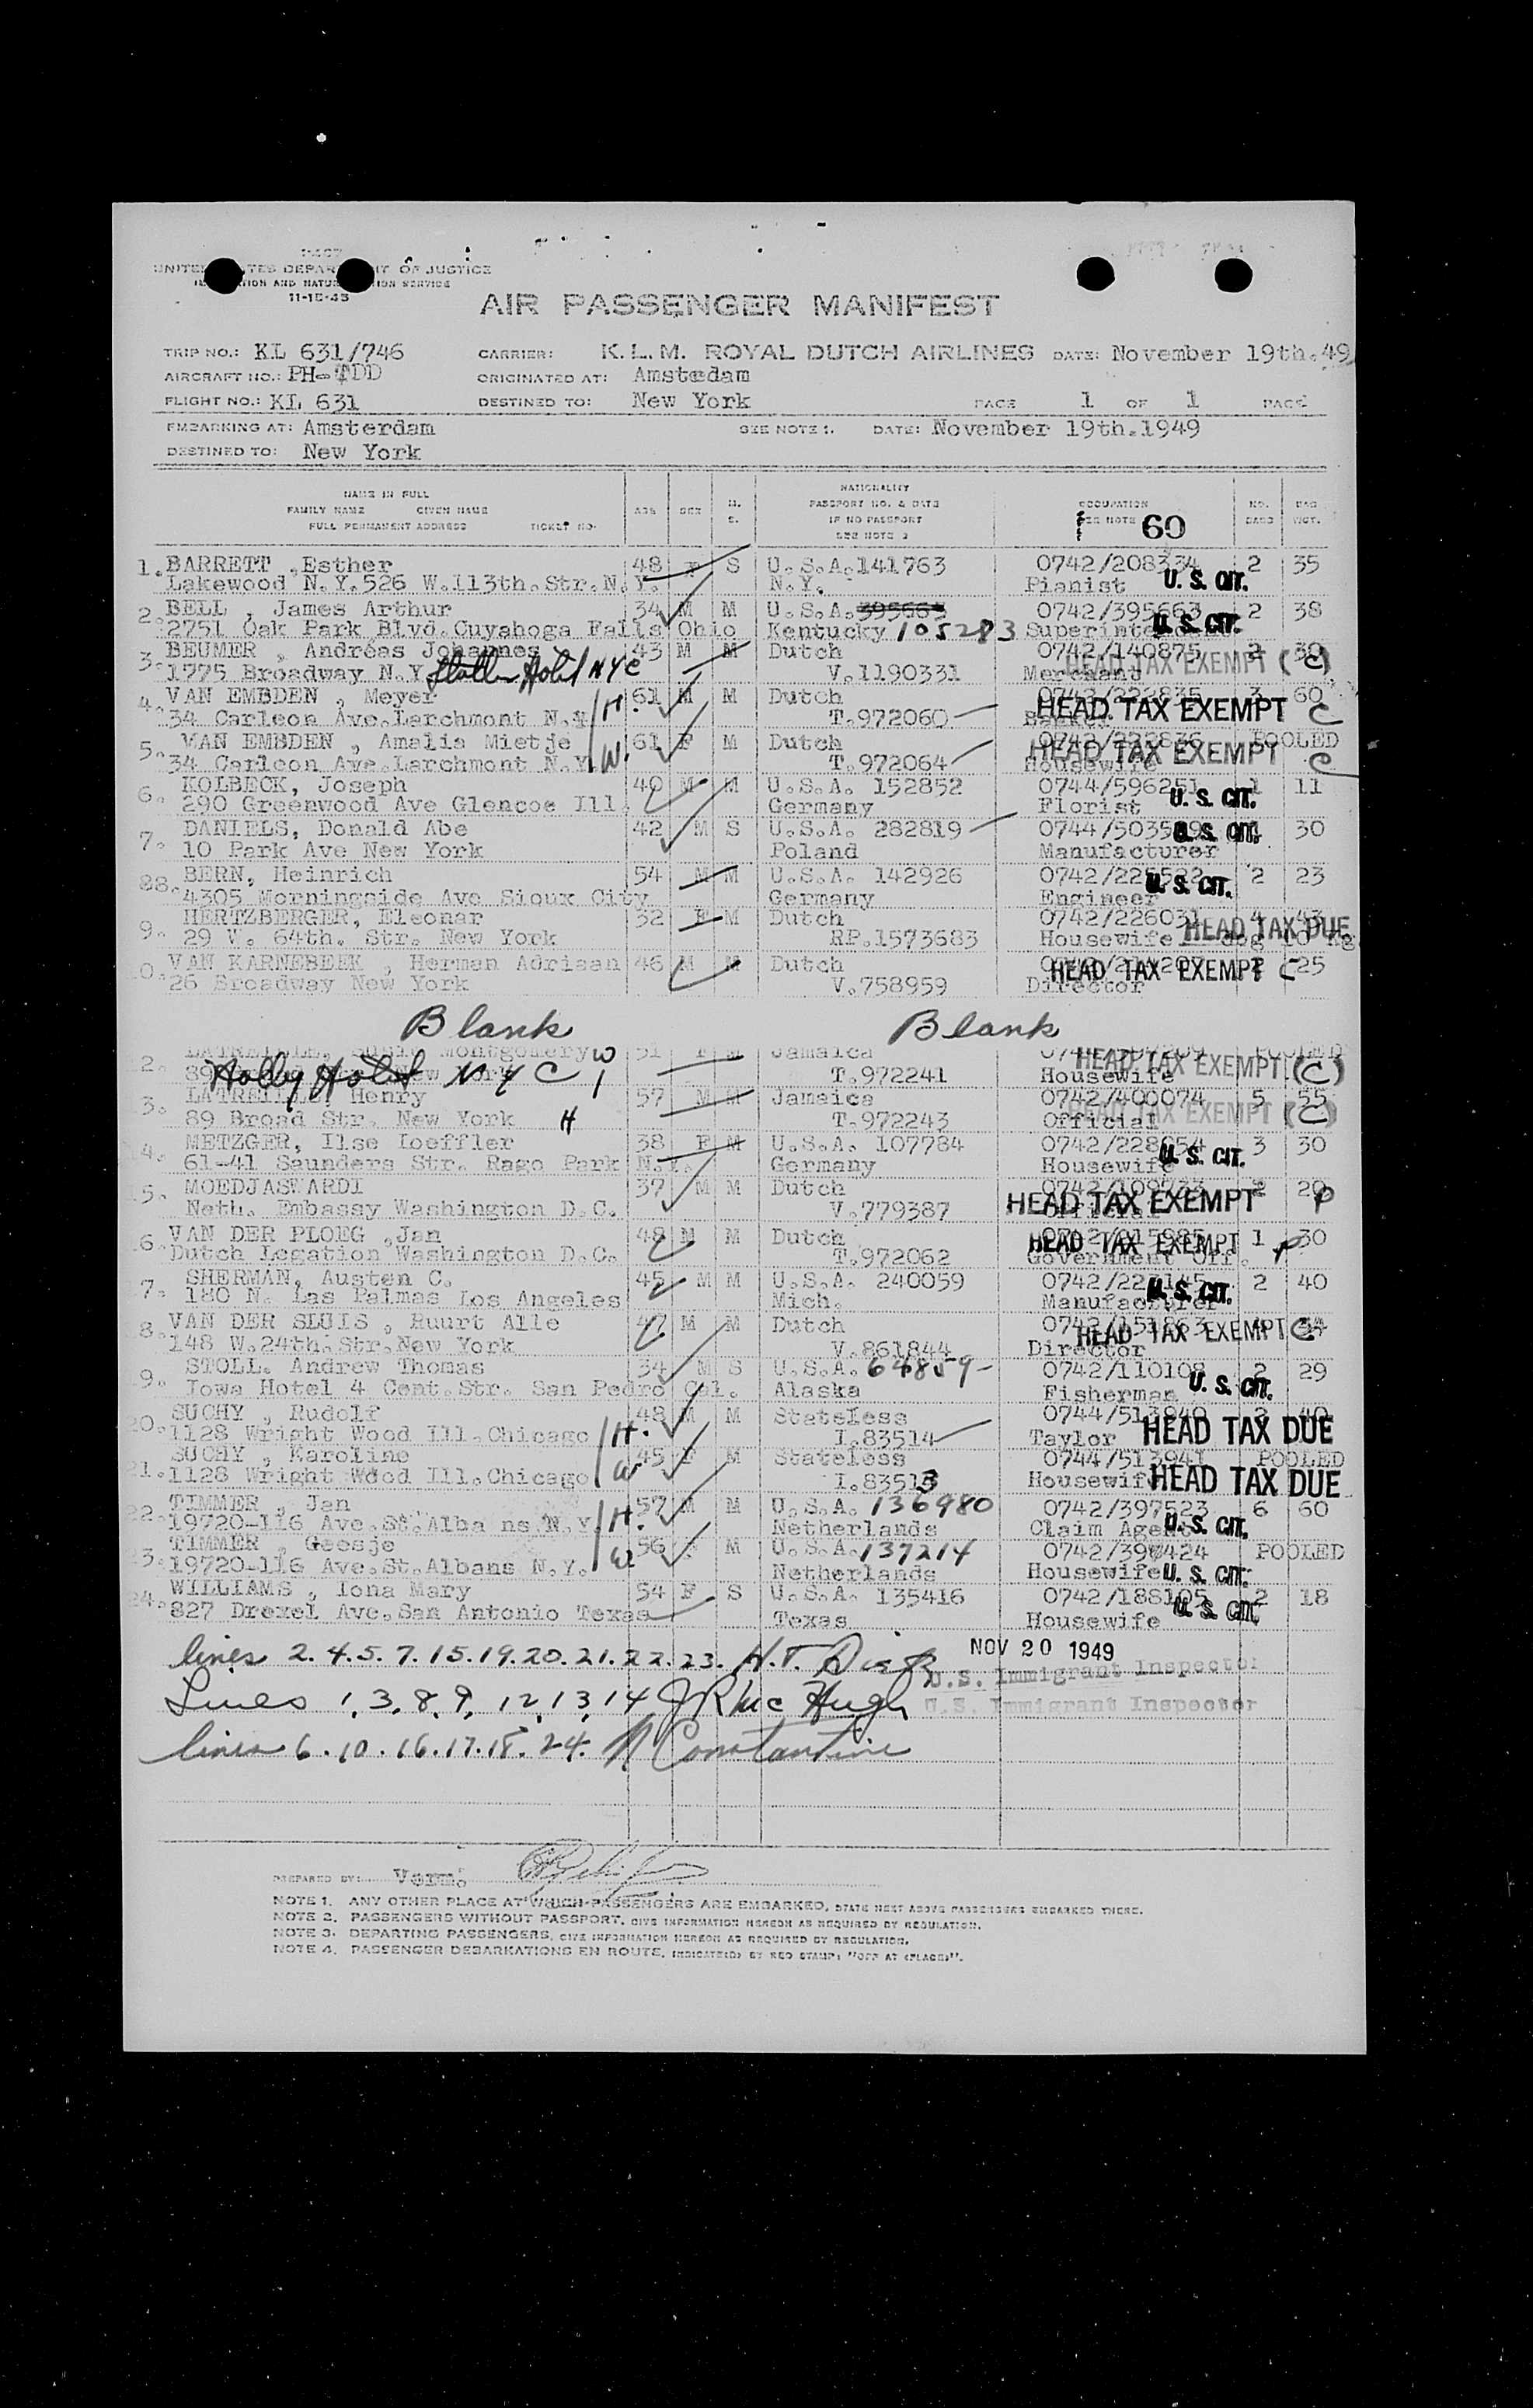 AIR PASSENGER MANIFEST
11-15-45
TRIP NO.: KL 631/746 CARRIER: K.L.M. ROYAL DUTCH AIRLINES DATE: November 19th.49
AIRCRAFT NO.: PH-TDD ORIGINATED AT: Amsterdam
FLIGHT NO.: KL 631 DESTINED TO: New York PAGE 1 OF 1
EMBARKING AT: Amsterdam SEE NOTE 1. DATE: November 19th.1949
DESTINED TO: New York
NAME IN FULL NATIONALITY
FAMILY NAME GIVEN NAME AGE SEX PASSPORT NO. & DATE OCCUPATION
FULL PERMANENT ADDRESS TICKET NO. IF NO PASSPORT SEE NOTE 60
1. BARRETT , Esther 48 F S U.S.A. 141763 0742/208334 2 35
Lakewood N.Y. 526 W.113th.Str.N.Y. N.Y. Pianist U.S. CIT.
2. BELL , James Arthur 34 M M U.S.A. 395663 0742/395663 2 38
2751 Oak Park Blvd.Cuyahoga Falls Ohio Kentucky 105283 U.S. CIT.
3. BEUMER , Andréas Johannes 43 M M Dutch 0742/140875 2 30
1775 Broadway N.Y. NYC V.1190331 Merchant HEAD TAX EXEMPT (C)
4. VAN EMBDEN , Meyer 61 M M Dutch 3 60
34 Carleon Ave.Larchmont N.Y. H. T.972060 HEAD TAX EXEMPT C
5. VAN EMBDEN , Amalia Mietje 61 F M Dutch POOLED
34 Carleon Ave.Larchmont N.Y. W. T.972064 Housewife HEAD TAX EXEMPT C
6. KOLBECK, Joseph 40 M M U.S.A. 152852 0744/596251 1 11
290 Greenwood Ave Glencoe Ill. Germany Florist U.S. CIT.
7. DANIELS, Donald Abe 42 M S U.S.A. 282819 U.S. CIT. 30
10 Park Ave New York Poland Manufacturer
88. BERN, Heinrich 54 M M U.S.A. 142926 U.S. CIT. 2 23
4305 Morningside Ave Sioux City Germany Engineer
9. HERTZBERGER, Eleonar 32 F M Dutch 0742/226031 4 43
29 V. 64th. Str. New York RP.1573683 Housewife HEAD TAX DUE dog 10 Kg
10. VAN KARNEBEEK , Herman Adriaan 46 M M Dutch HEAD TAX EXEMPT C 2 25
26 Broadway New York V.758959 Director
Blank Blank
2. Montgomery W 51 F M Jamaica HEAD TAX EXEMPT (C)
NYC T.972241 Housewife
3. LATREILLE, Henry 57 M M Jamaica 0742/400074 5 55
89 Broad Str. New York H T.972243 Official HEAD TAX EXEMPT (C)
4. METZGER, Ilse Loeffler 38 F M U.S.A. 107784 0742/228654 3 30
61-41 Saunders Str. Rago Park N.Y. Germany Housewife U.S. CIT.
5. MOEDJASWARDI 37 M M Dutch 2 20
Neth. Embassy Washington D.C. V.779387 HEAD TAX EXEMPT P
6. VAN DER PLOEG ,Jan 48 M M Dutch HEAD TAX EXEMPT 1 30
Dutch Legation Washington D.C. T.972062 Government Off. P
7. SHERMAN, Austen C. 45 M M U.S.A. 240059 U.S. CIT. 2 40
180 N. Las Palmas Los Angeles Mich. Manufacturer
8. VAN DER SLUIS , Ruurt Alle 47 M M Dutch HEAD TAX EXEMPT C
148 W.24th.Str.New York V.861844 Director
9. STOLL. Andrew Thomas 34 M S U.S.A. 64859 0742/110108 2 29
Iowa Hotel 4 Cent.Str. San Pedro Cal. Alaska Fisherman U.S. CIT.
20. SUCHY , Rudolf 48 M M Stateless 40
1128 Wright Wood Ill.Chicago H. I.83514 Taylor HEAD TAX DUE
21. SUCHY , Karoline 45 F M Stateless 0744/513941 POOLED
1128 Wright Wood Ill.Chicago W I.83513 Housewife HEAD TAX DUE
22. TIMMER , Jan 57 M M U.S.A. 136980 0742/397523 6 60
19720-116 Ave.St.Albans N.Y. H. Netherlands Claim Agent U.S. CIT.
23. TIMMER , Geesje 56 F M U.S.A. 137214 POOLED
19720-116 Ave.St.Albans N.Y. W Netherlands Housewife U.S. CIT.
24. WILLIAMS , Iona Mary 54 F S U.S.A. 135416 0742/188105 2 18
827 Drexel Ave.San Antonio Texas Texas Housewife U.S. CIT.
lines 2.4.5.7.15.19.20.21.22.23. H.T. NOV 20 1949
U.S. Immigrant Inspector
Lines 1,3,8,9,12,13,14 J R McHugh U.S. Immigrant Inspector
lines 6.10.16.17.18.24. N Constantine
PREPARED BY:
NOTE 1. ANY OTHER PLACE AT WHICH PASSENGERS ARE EMBARKED, STATE NEXT ABOVE PASSENGERS EMBARKED THERE.
NOTE 2. PASSENGERS WITHOUT PASSPORT, GIVE INFORMATION HEREON AS REQUIRED BY REGULATION.
NOTE 3. DEPARTING PASSENGERS, GIVE INFORMATION HEREON AS REQUIRED BY REGULATION.
NOTE 4. PASSENGER DEBARKATIONS EN ROUTE, INDICATE(D) BY RED STAMP: "OFF AT (PLACE)".